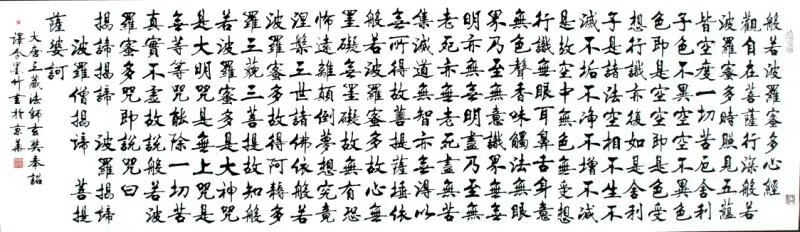 般若波羅蜜多心經
觀自在菩薩行深般若
波羅蜜多時照見五蘊
皆空度一切苦厄舍利
子色不異空空不異色
色即是空空即是色受
想行識亦復如是舍利
子是諸法空相不生不
滅不垢不淨不增不減
是故空中無色無受想
行識無眼耳鼻舌身意
無色聲香味觸法無眼
界乃至無意識界無無
明亦無無明盡乃至無
老死亦無老死盡無苦
集滅道無智亦無得以
無所得故菩提薩埵依
般若波羅蜜多故心無
罣礙無罣礙故無有恐
怖遠離顛倒夢想究竟
涅槃三世諸佛依般若
波羅蜜多故得阿耨多
羅三藐三菩提故知般
若波羅蜜多是大神咒
是大明咒是無上咒是
無等等咒能除一切苦
真實不虛故說般若波
羅蜜多咒即說咒曰
揭諦揭諦 波羅揭諦
波羅僧揭諦 菩提
薩婆訶
大唐三藏法師玄奘奉詔
譯 墨竹書於京華